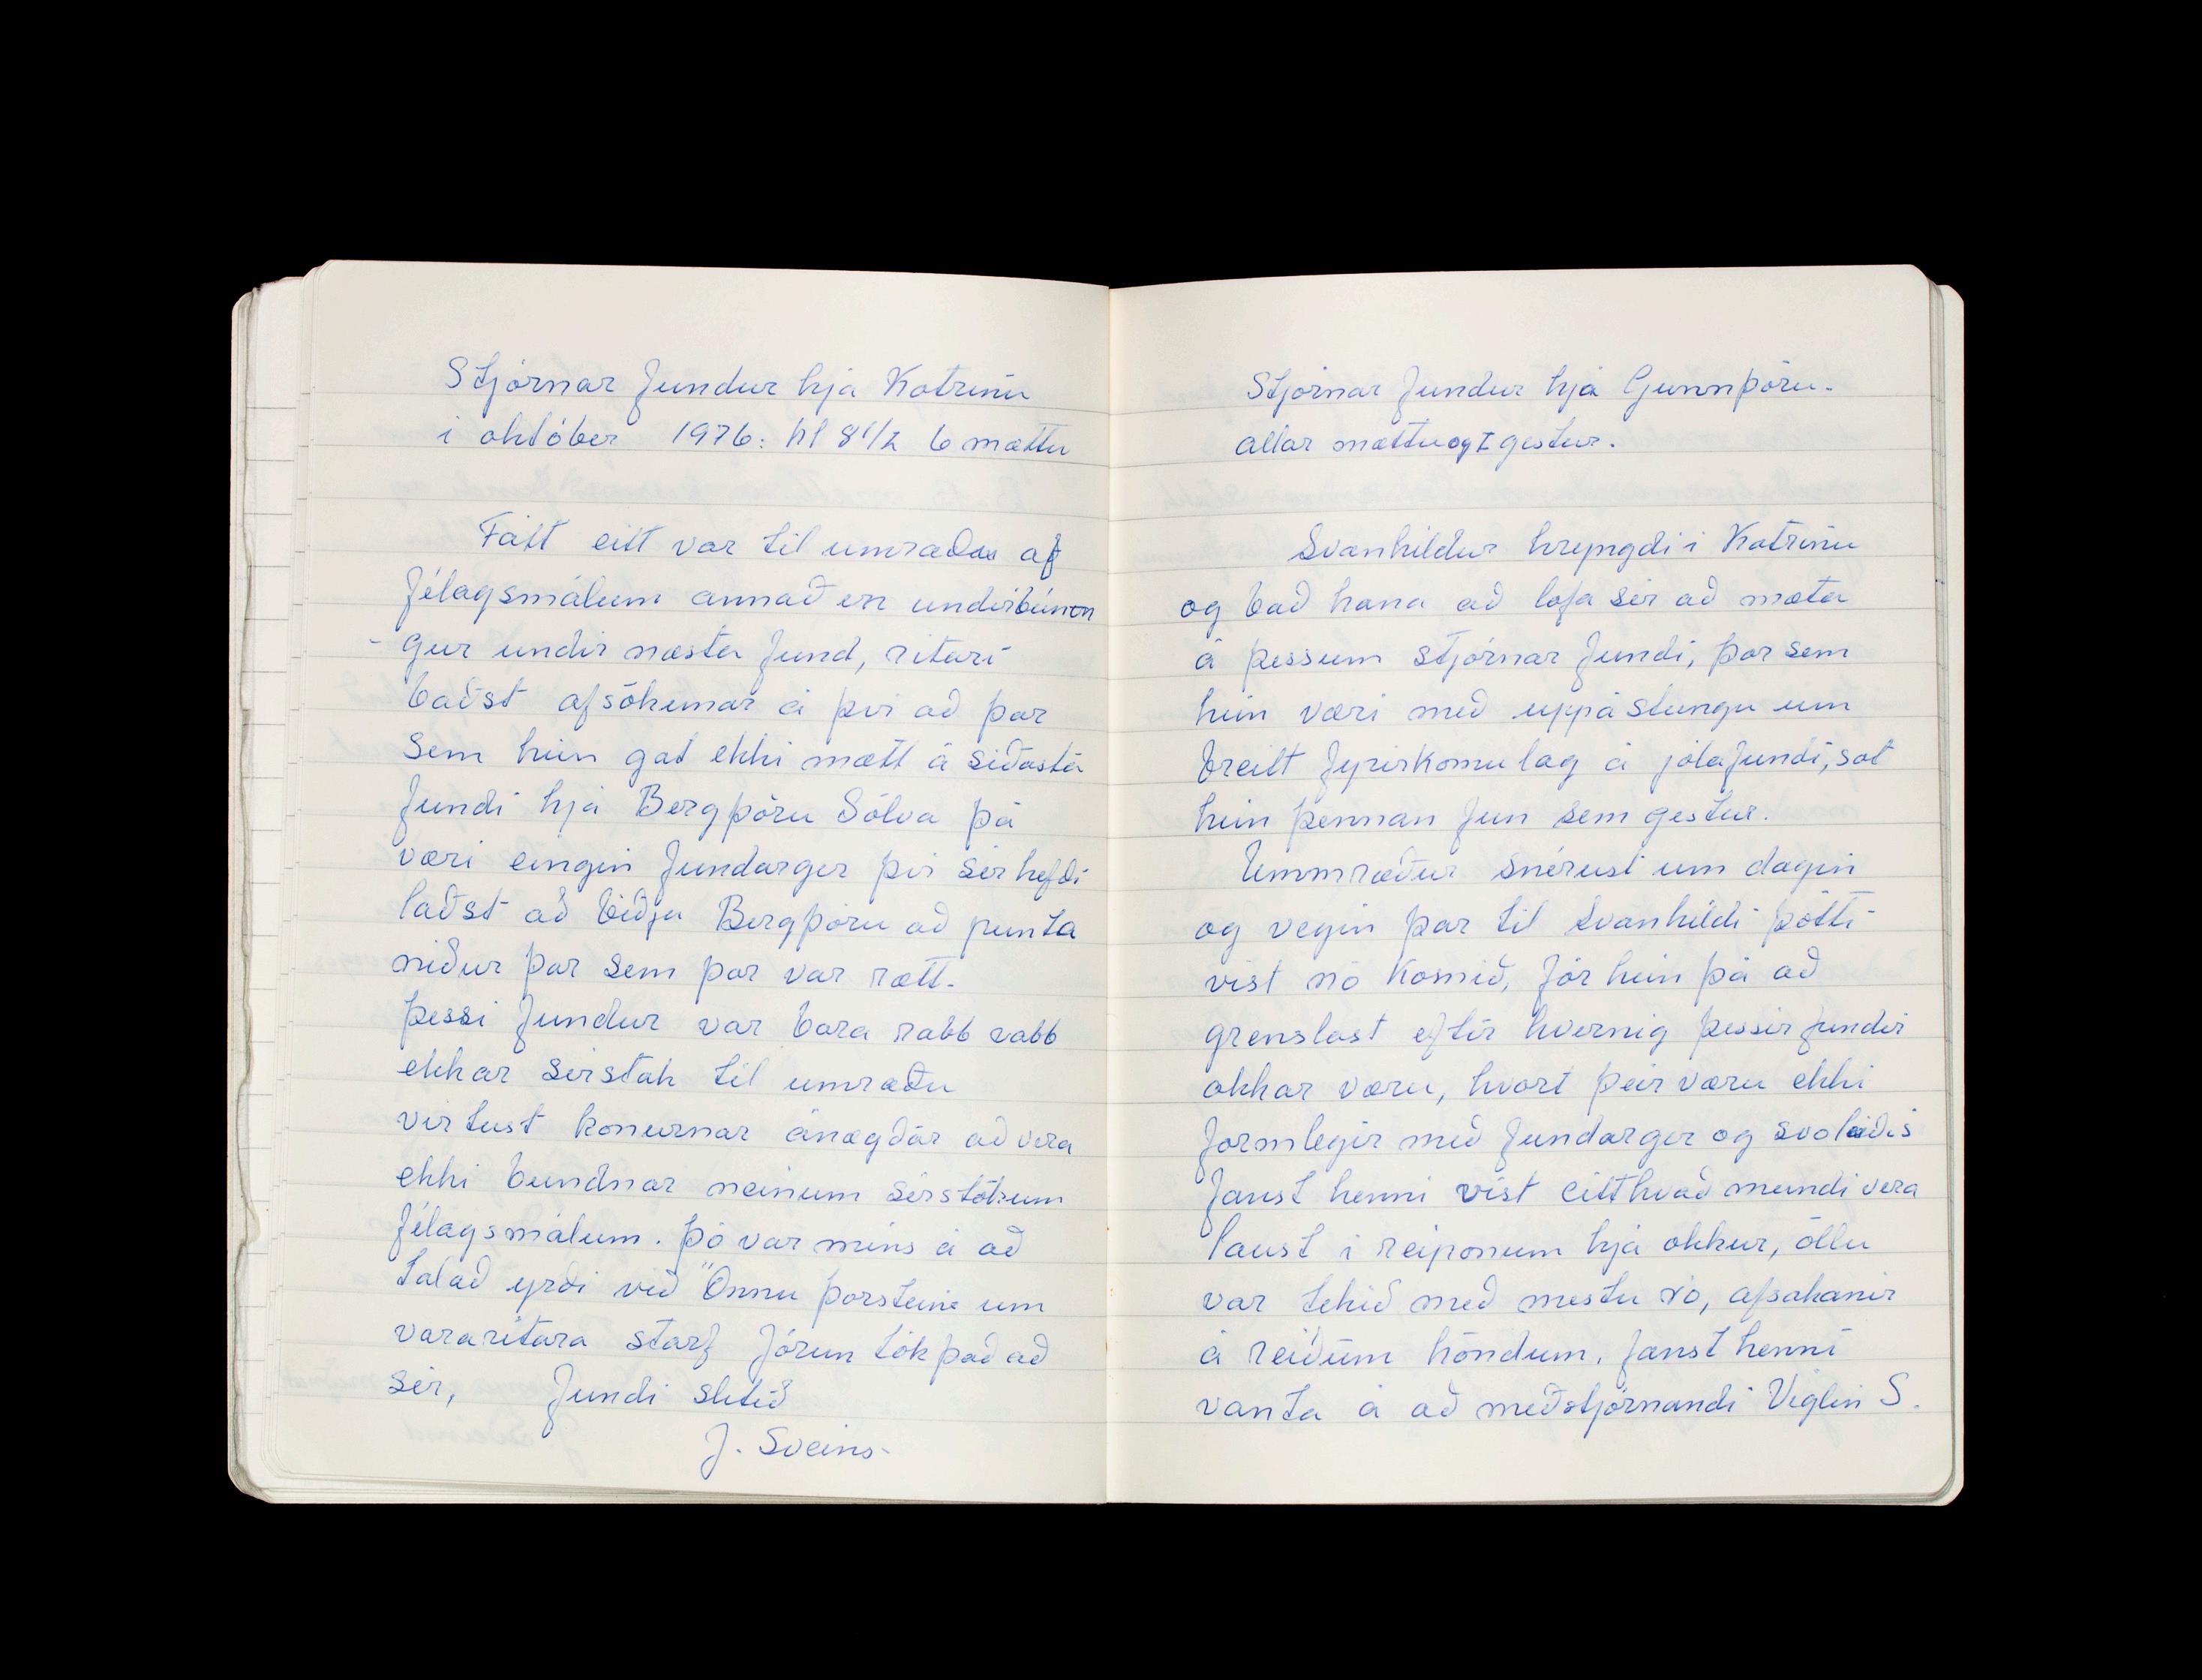 Stjórnar fundur hjá Katrínu
í október 1976: kl 8 1/2 6 mættu
Fátt eitt var til umræðu af
félagsmálum annað en undirbúnon
- gur undir næsta fund, ritari
baðst afsökunar á því að þar
sem hún gat ekki mætt á síðasta
fundi hjá Bergþóru Sölva þá
væri eingin fundarger því sér hefði
láðst að biðja Bergþóru að punta
niður þar sem þar var rætt.
þessi fundur var bara rabb rabb
ekkar sérstak til umræðu
virtust konurnar ánægðar að vera
ekki bundnar neinum sérstökum
félagsmálum. þó var mins á að
talað yrði við Önnu þorsteins um
vararitara starf Jórun tók það að
sér, fundi slitið
J. Sveins-
Stjórnar fundur hjá Gunnþóru.
allar mættu og I gestur.
Svanhildur hryngdi í Katrínu
og bað hana að lofa sér að mæta
á þessum stjórnar fundi, þar sem
hún væri með uppástungu um
breitt fyrirkomulag á jólafundi, sat
hún þennan fun sem gestur.
Ummræður snérust um dagin
og vegin þar til Svanhildi þótti
víst nó komið, fór hún þá að
grenslast eftir hvernig þessir fundir
okkar væru, hvort þeir væru ekki
formlegir með fundarger og svoleiðis
fanst henni víst eitthvað mundi vera
laust í reiponum hjá okkur, öllu
var tekið með mestu ró, afsakanir
á reiðum höndum, fanst henni
vanta á að meðstjórnandi Víglin S.